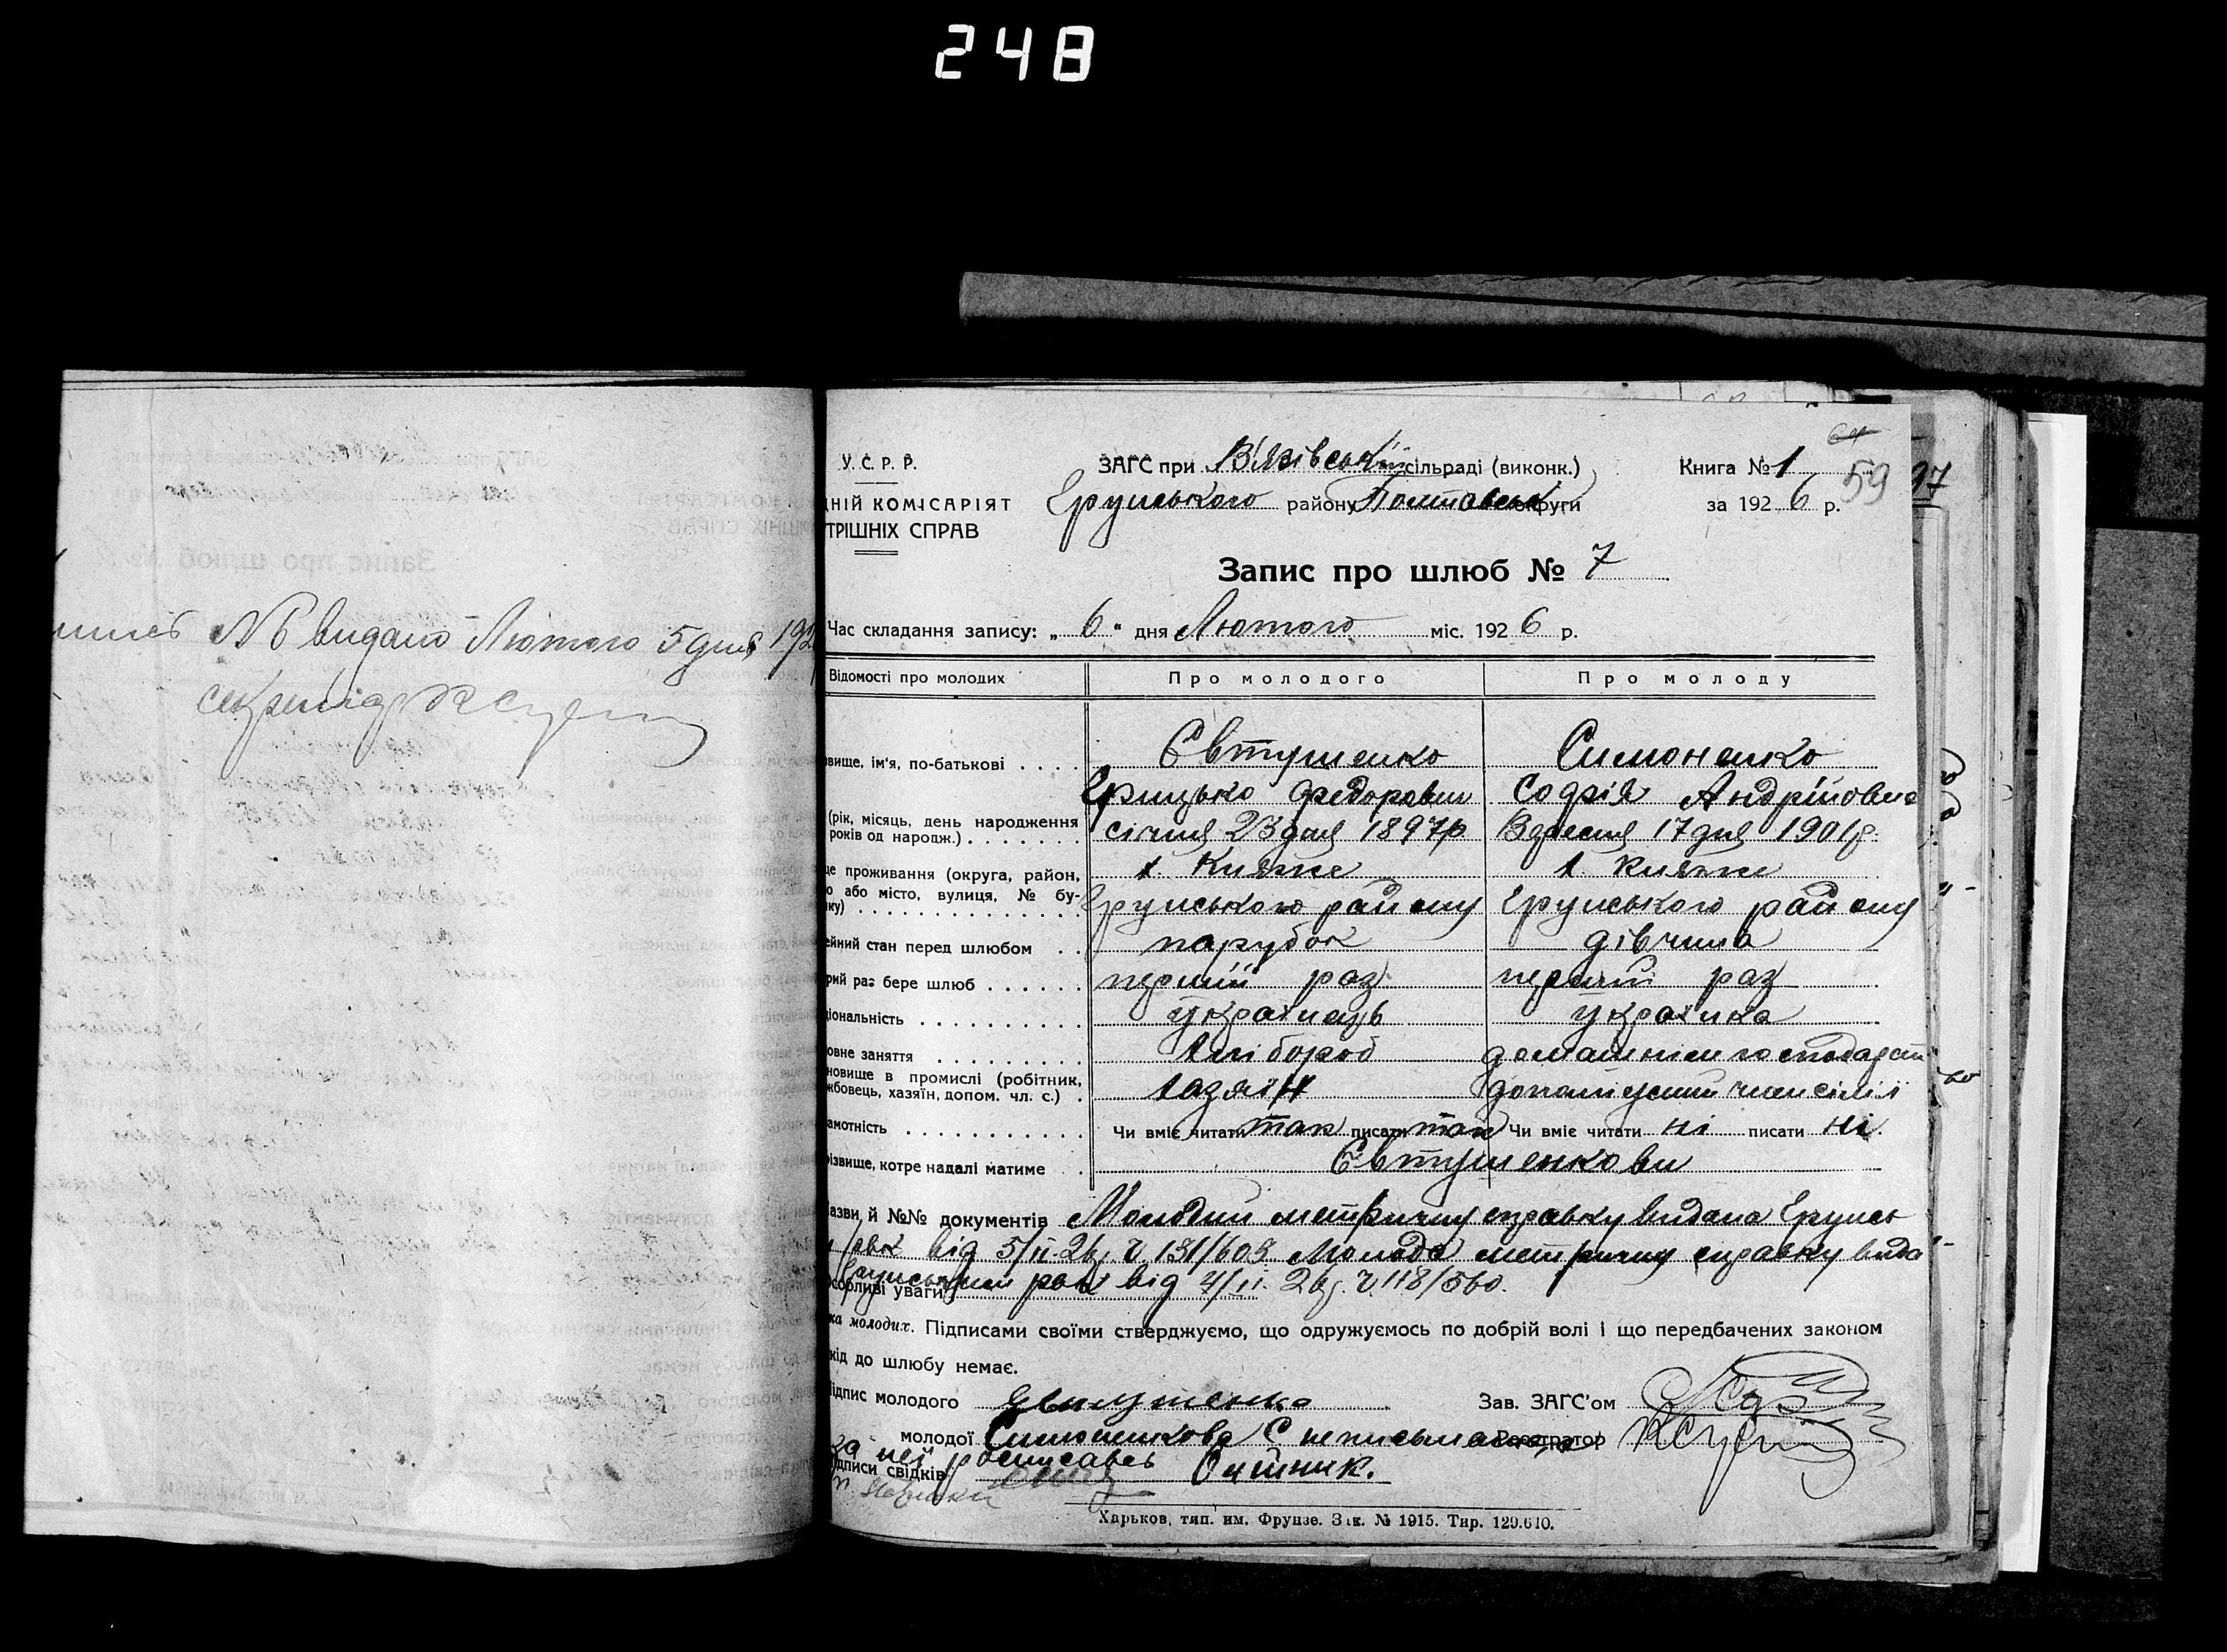 248
№ 6 видано Лютого 5 дня 192
секретар
64
У. С. Р. Р.
ЗАГС при Вʼязівській сільраді (виконк.)
Книга № 1
59
97
НІЙ КОМІСАРІЯТ
Грунського району Полтавськ округи
за 192 6 р.
ТРІШНІХ СПРАВ
Запис про шлюб № 7
Час складання запису: „ 6 “ дня Лютого міс. 192 6 р.
Відомості про молодих
Про молодого
Про молоду
вище, ім'я, по-батькові . . . .
Євтушенко
Симоненко
Грицько Федорович
Софія Андрійовна
(рік, місяць, день народження
років од народж.) . . . . . . .
січня 23 дня 1897р
Вересня 17 дня 1901р.
це проживання (округа, район,
о або місто, вулиця, № бу-
ку) . . . . . . . . . . . . . . .
х. Княже
х. Княже
Грунського району
Грунського району
ейний стан перед шлюбом . .
парубок
дівчина
рий раз бере шлюб . . . . . .
перший раз
перший раз
ціональність . . . . . . . . . . .
українець
українка
овне заняття . . . . . . . . . .
хлібороб
домашнім господарст
новище в промислі (робітник,
жбовець, хазяїн, допом. чл. с.) .
хазяїн
допомужний член сімʼї
амотність . . . . . . . . . . . .
Чи вміє читати так писати так
Чи вміє читати ні писати ні.
різвище, котре надалі матиме .
Євтушенкови
азви й №№ документів Молодий метричну справку видана Грунсь
рвк від 5/II-26р. ч 131/609 Молода метричну справку вида
Грунським рвк від 4/II. 26р. ч 118/560.
собливі уваги
ка молодих. Підписами своїми стверджуємо, що одружуємось по добрій волі і що передбачених законом
кід до шлюбу немає.
Підпис молодого Євтушенко
Зав. ЗАГС'ом
молодої Симоненкова С неписьменна
Реєстратор
за неї росписавсь
ідписи свідків
Харьков, тип. им. Фрунзе. Зак. № 1915. Тир. 129.610.